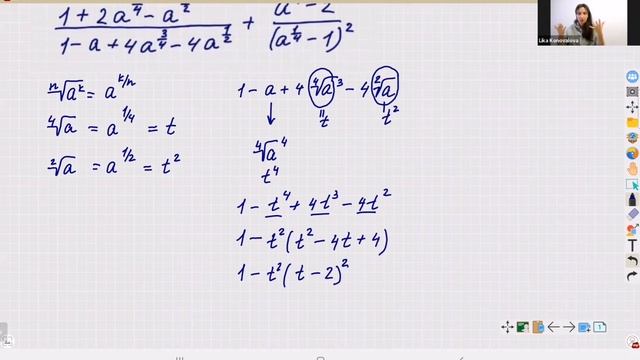 1 + 2a^{1/4} − a^{1/2}
1 − a + 4a^{3/4} − 4a^{1/2}
+
− 2
(a^{1/4} − 1)^2
Lika Konovalova
ⁿ√a^k = a^{k/n}
⁴√a = a^{1/4} = t
²√a = a^{1/2} = t^2
1 − a + 4 ⁴√a^3 − 4 ²√a
t
t^2
⁴√a^4
t^4
1 − t^4 + 4t^3 − 4t^2
1 − t^2 (t^2 − 4t + 4)
1 − t^2 (t − 2)^2
T
1